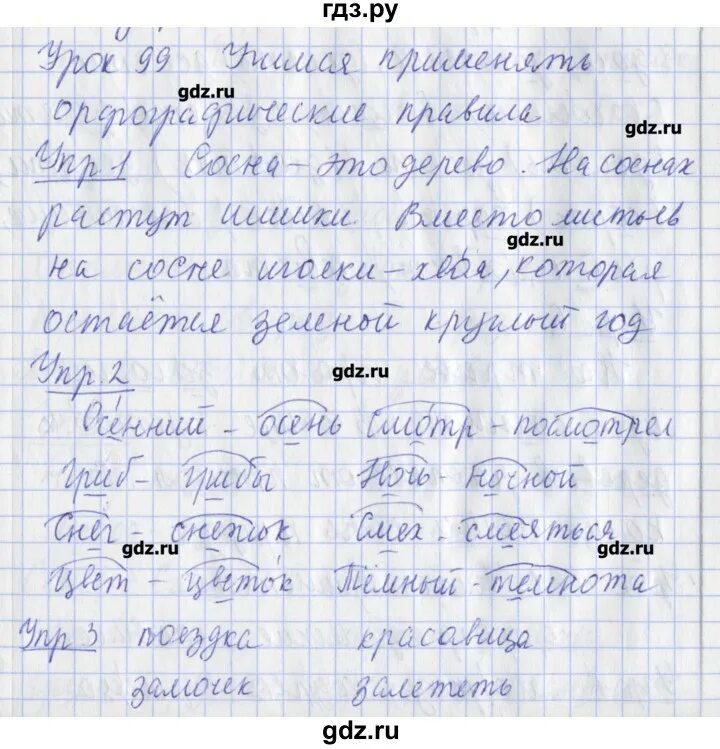 гдз.ру
Урок 99 Учимся применять
gdz.ru
орфографические правила
gdz.ru
Упр.1 Сосна – это дерево. На соснах
растут шишки. Вместо листьев
gdz.ru
на сосне иголки – хвоя, которая
остаётся зеленой круглый год
Упр.2
gdz.ru
Осенний – осень Смотр – посмотрел
Гриб – грибы Ночь – ночной
Снег – снежок Смех – смеяться
gdz.ru gdz.ru
Цвет – цветок Тёмный – темнота
Упр 3 поездка красавица
замочек залететь
gdz.ru